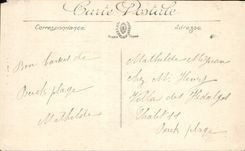 Carte Postale
Correspondance
Adresse
Bon baiser de
Berck plage
Mathilde
Mathilde
chez Mr Henry
Villa des Hidalgos
Chalet 11
Berck plage